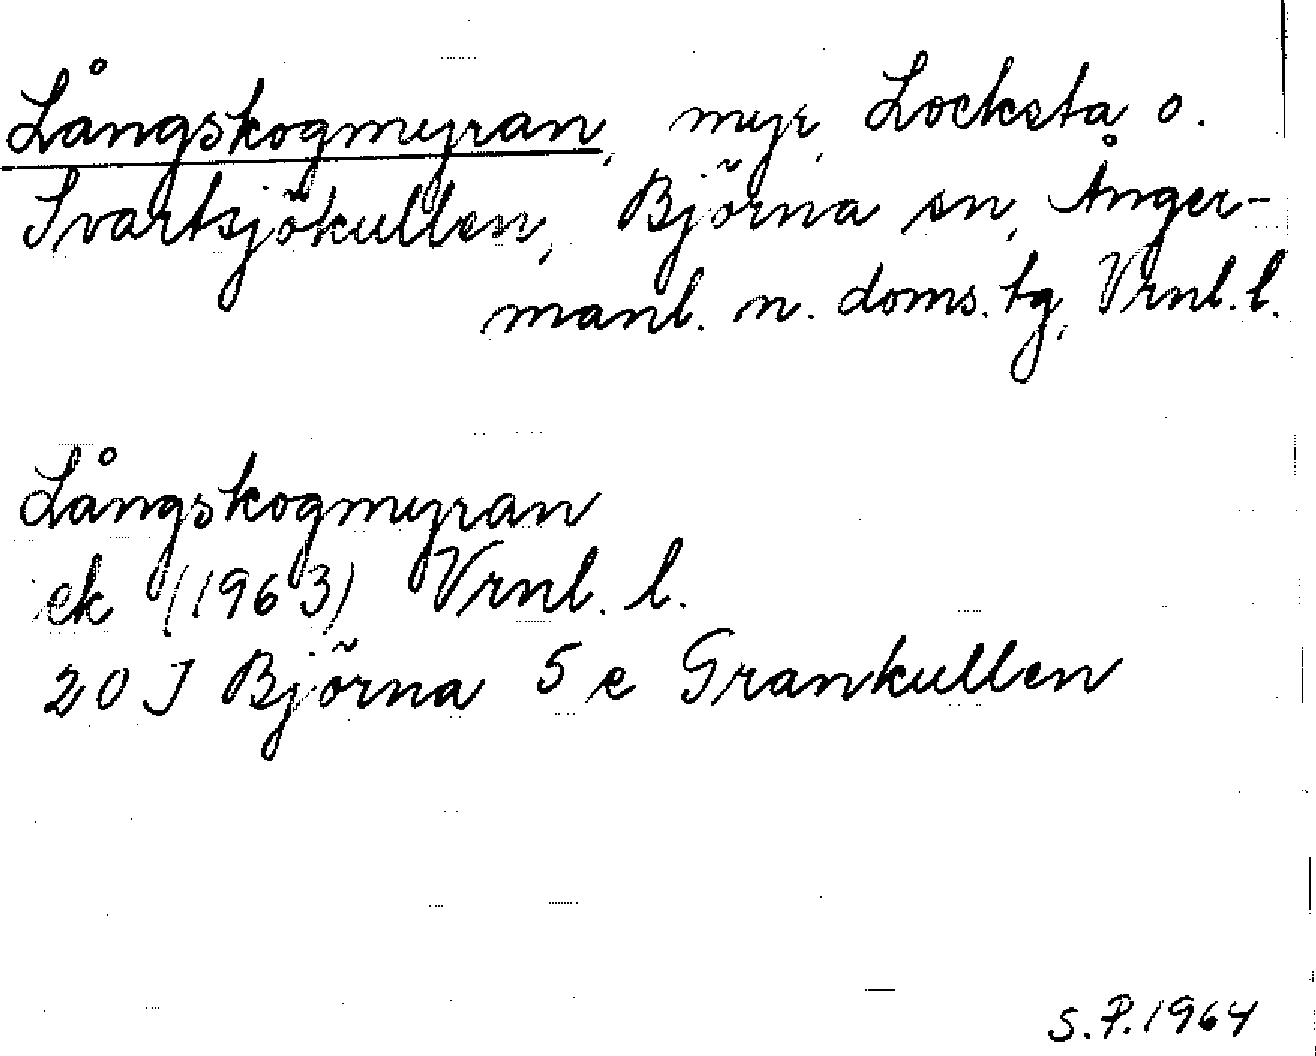 Långskogmyran, myr, Locksta o.
Svartsjökullen, Björna sn, Ånger-
manl. n. doms. tg, Vrnl. l.
Långskogmyran
ek (1963) Vrnl. l.
20 J Björna 5 e Grankullen
S.P. 1964